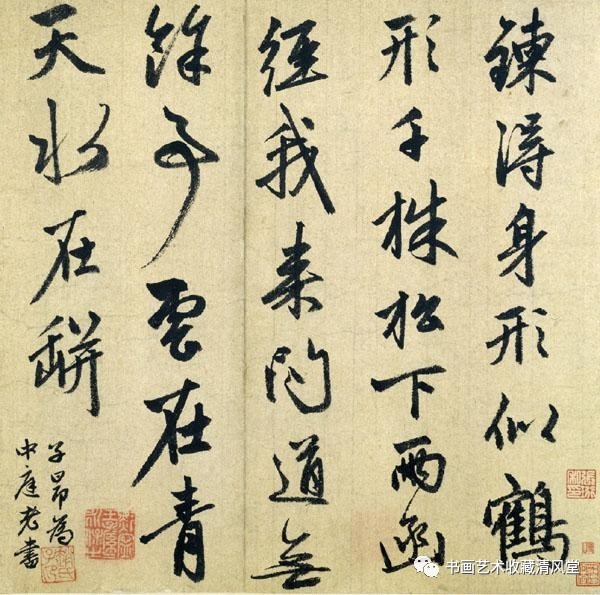 鍊得身形似鶴
形千株松下兩函
經我来問道無
餘事雲在青
天水在缾
子昂為
中庭老書
书画艺术收藏清风堂